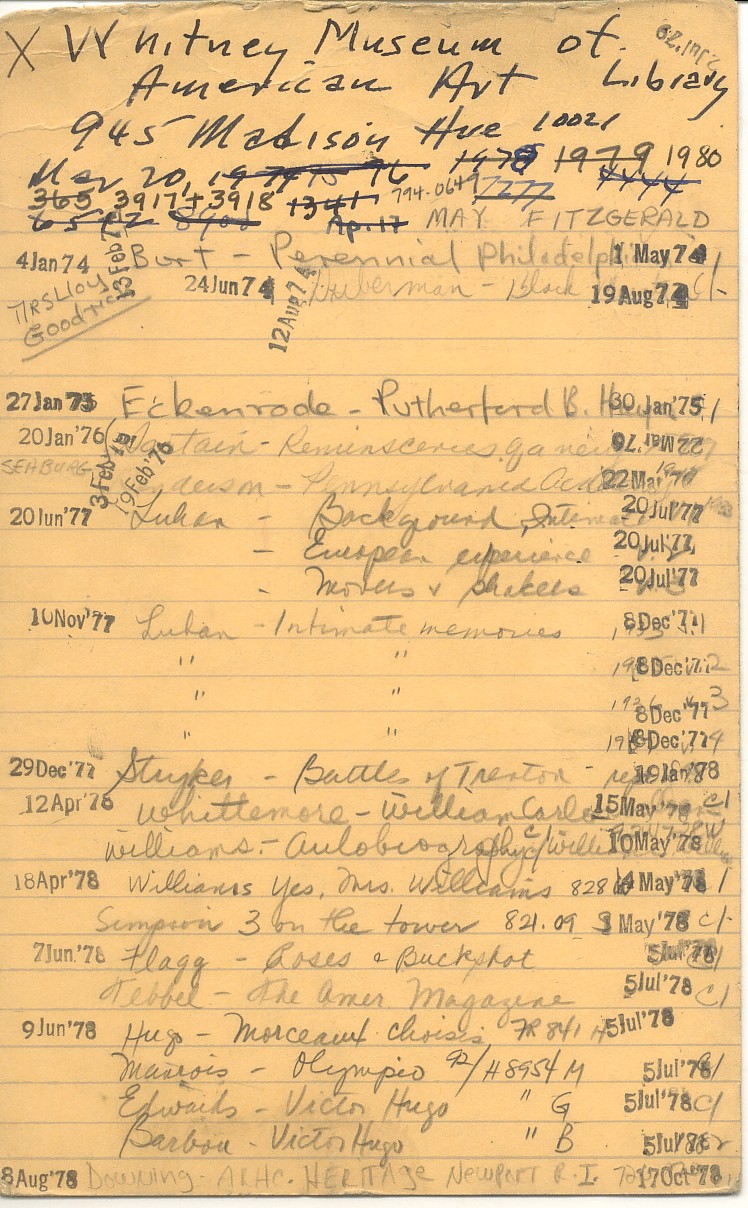 X Whitney Museum of
American Art Library
945 Madison Ave 10021
Mar 20, 1974 75 76 1978 1979 1980
365 3917 + 3918 +341 794-0649 7277 4444
6512 Ap. 17 MAY FITZGERALD
4 Jan 74 13 Feb 7 Burt - Perennial Philadelph 1 May 74 /
Mrs Lloyd Goodrich 24 Jun 74 12 Aug 74 Duberman - Black 19 Aug 74 c/-
27 Jan '75 Eckenrode - Rutherford B. Hayes 30 Jan '75 /
20 Jan '76 Sartain - Reminscences of a very 22 Mar '76
SEABURG 3 Feb '76 19 Feb '76 Anderson - Pennsylvania Acad 22 Mar '76
20 Jun '77 Luhan - Background, Intimate 20 Jul '77
- European experience 20 Jul '77
- Movers & Shakers 20 Jul '77
10 Nov '77 Luhan - Intimate memories 8 Dec '77
" " 8 Dec '77 2
" " 8 Dec '77 3
" " 8 Dec '77 4
29 Dec '77 Stryker - Battles of Trenton - 19 Jan '78
12 Apr '78 Whittemore - William Carlo 15 May '78 c/
Williams - Autobiography c/ 10 May '78
18 Apr '78 Williams Yes, Mrs. Williams 828 May '78 /
Simpson 3 on the tower 821.09 3 May '78 c/-
7 Jun '78 Flagg - Roses & Buckshot 5 Jul '78 c/
Tebbel - The Amer. Magazine 5 Jul '78 c/
9 Jun '78 Hugo - Morceaux choisis FR 841 H 5 Jul '78
Maurois - Olympio 92/H8954 M 5 Jul '78 c/
Edwards - Victor Hugo " G 5 Jul '78 c/
Barbou - Victor Hugo " B 5 Jul '78
8 Aug '78 Downing - ARHC. HERITAGE Newport R.I. 17 Oct '78